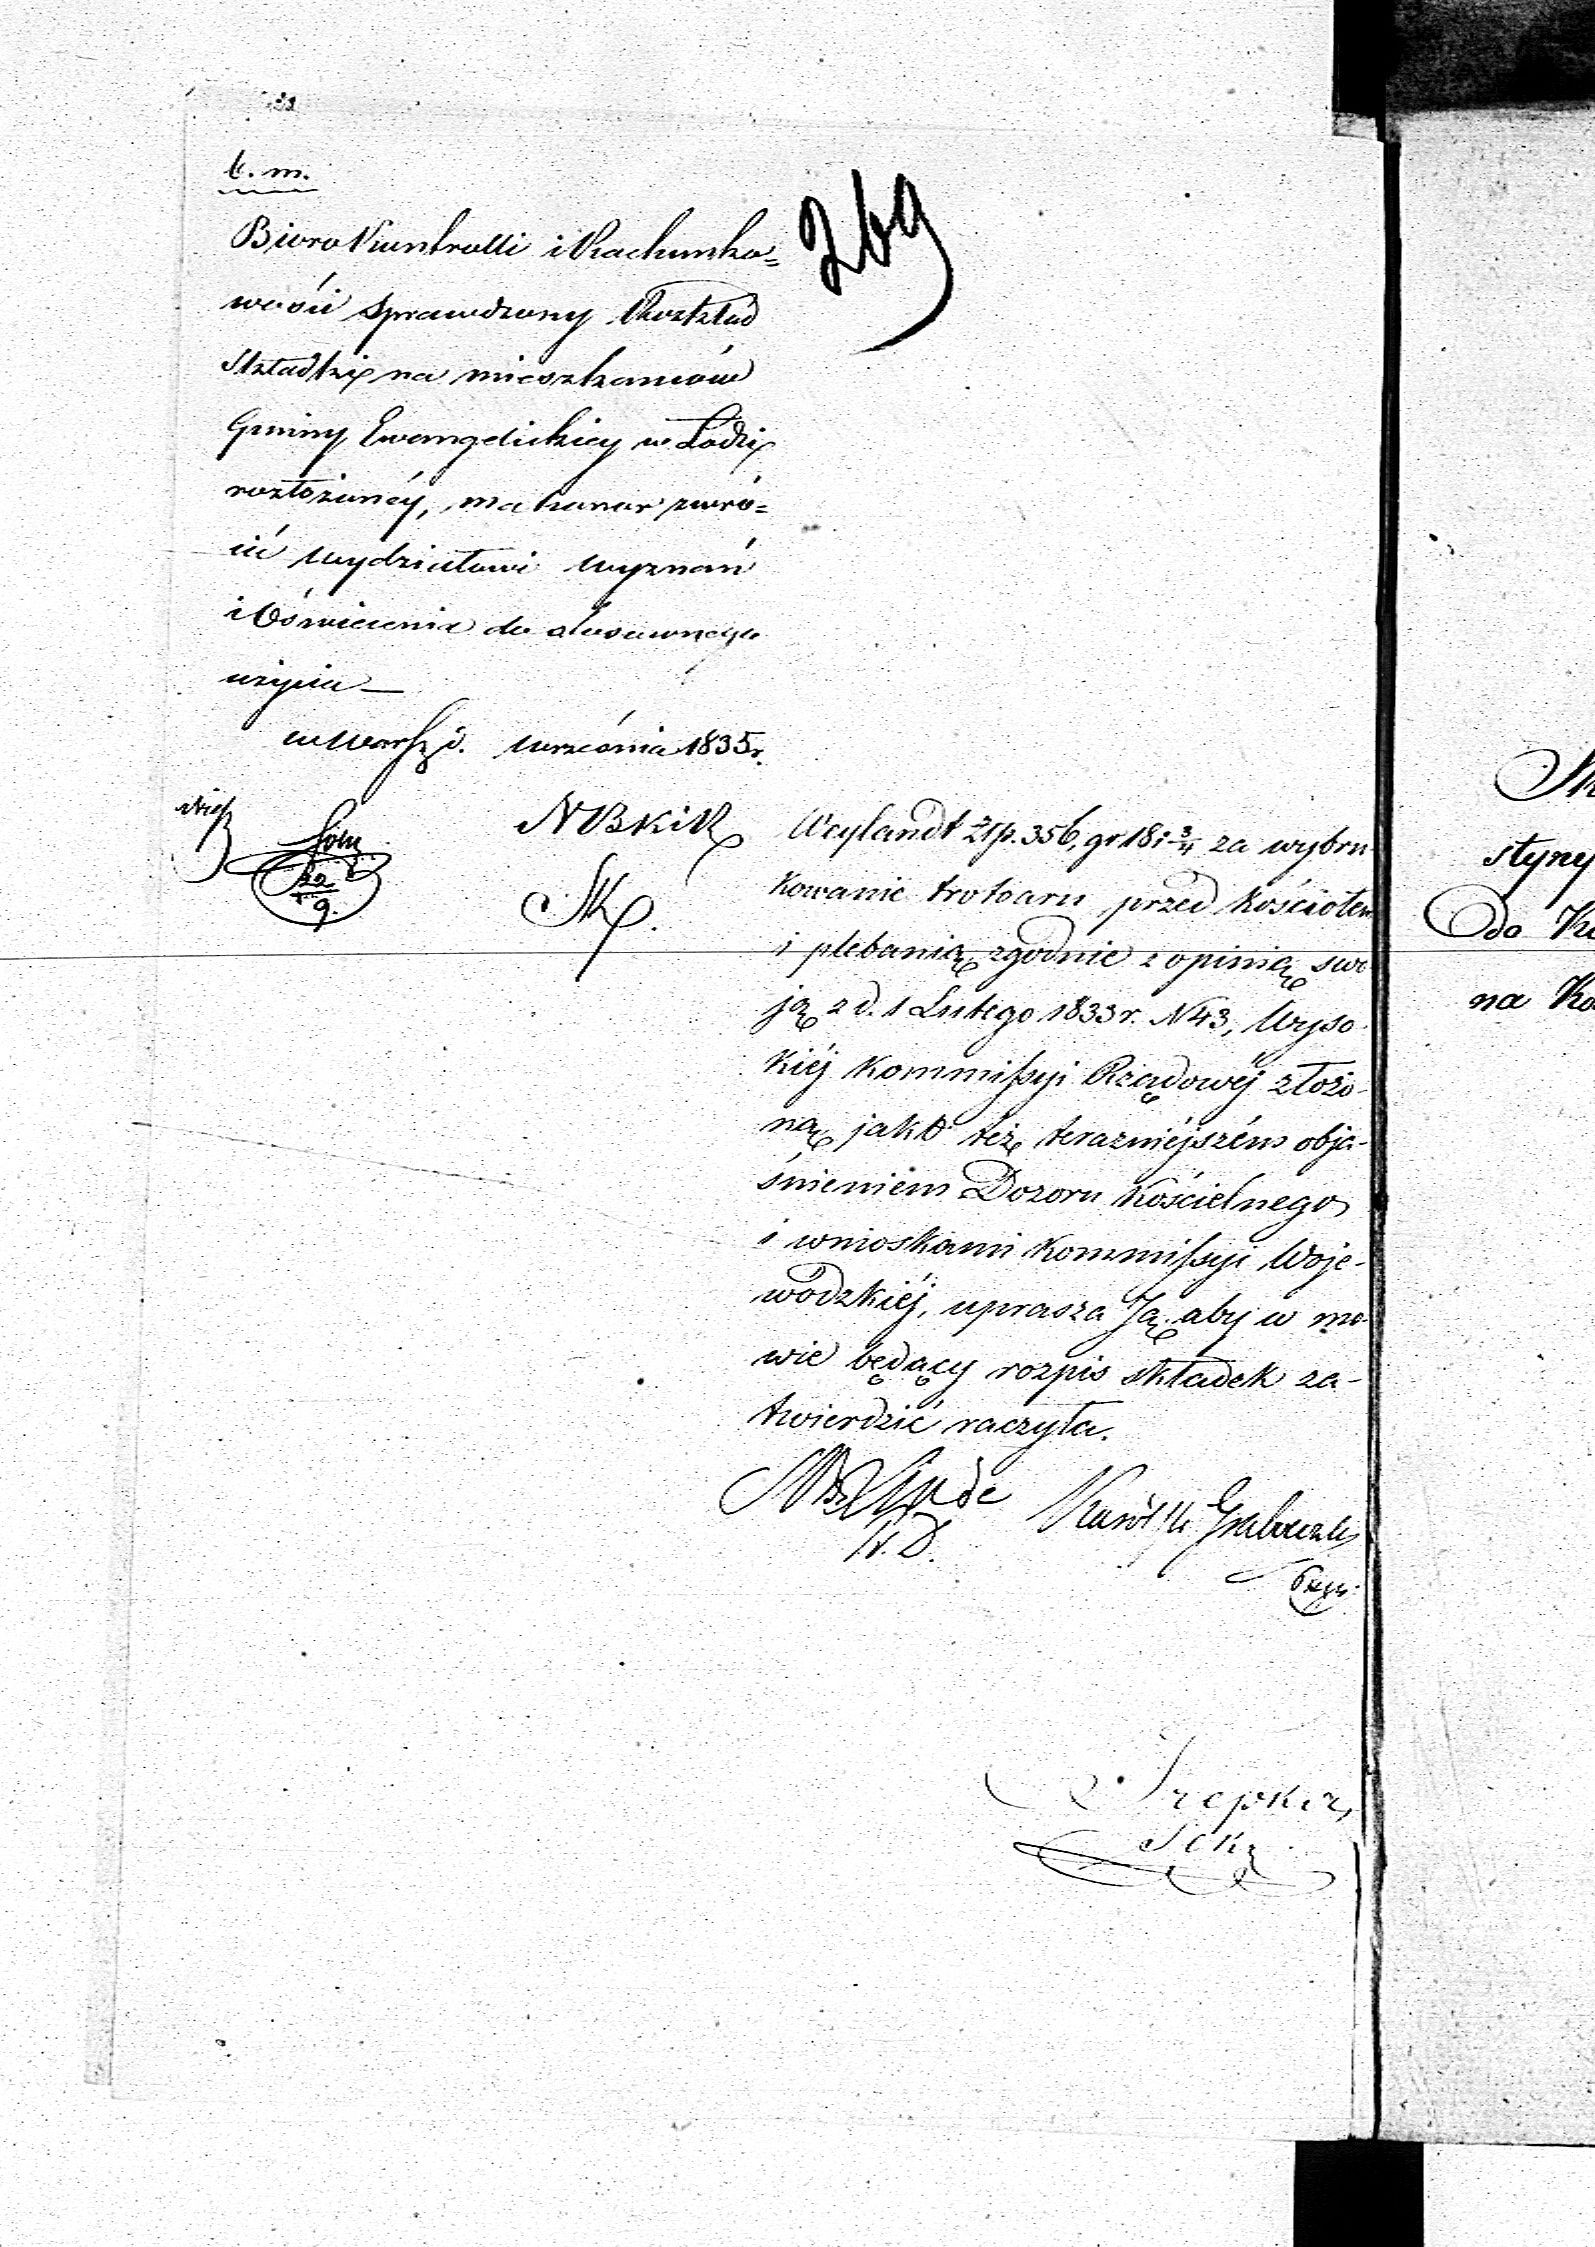 b. m.
269
Biuro Kuntrolli i Rachunko=
wości sprawdzony Rozkład
Składki na mieszkańców
Gminy Ewangelickiey w Łodzi
rozłożonéy, ma honor zwró=
cić Wydziałowi Wyznań
i Oświecenia do stosownego
użycia —
w Warsz. d. Września 1835 r.
NBKiR
22
9.
Weylandt Złp. 356, gr 18 i 3/4 za wybru-
kowanie trotoaru przed Kościołem
i plebanią zgodnie z opinią swo-
ją z d. 1 Lutego 1833 r. N 43, Wyso-
kiéj Kommissyi Rządowéj złożo-
ną jako też terazniéjszém obja-
śnieniem Dozoru Kościelnego
i wnioskami Kommissyi Woje-
wódzkiéj, uprasza Ją aby w mo-
wie będący rozpis składek za-
twierdzić raczyła.
Linde
P. D.
Karól
Sekr
styny
Do Ko
na Ko